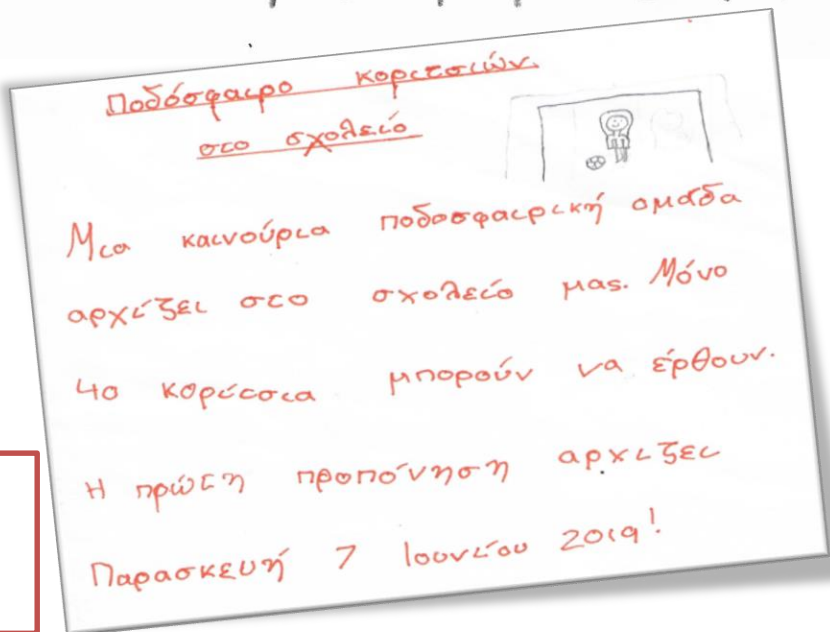 Ποδόσφαιρο κοριτσιών
στο σχολείο
Μια καινούρια ποδοσφαιρική ομάδα
αρχίζει στο σχολείο μας. Μόνο
40 κορίτσια μπορούν να έρθουν.
Η πρώτη προπόνηση αρχίζει
Παρασκευή 7 Ιουνίου 2019!